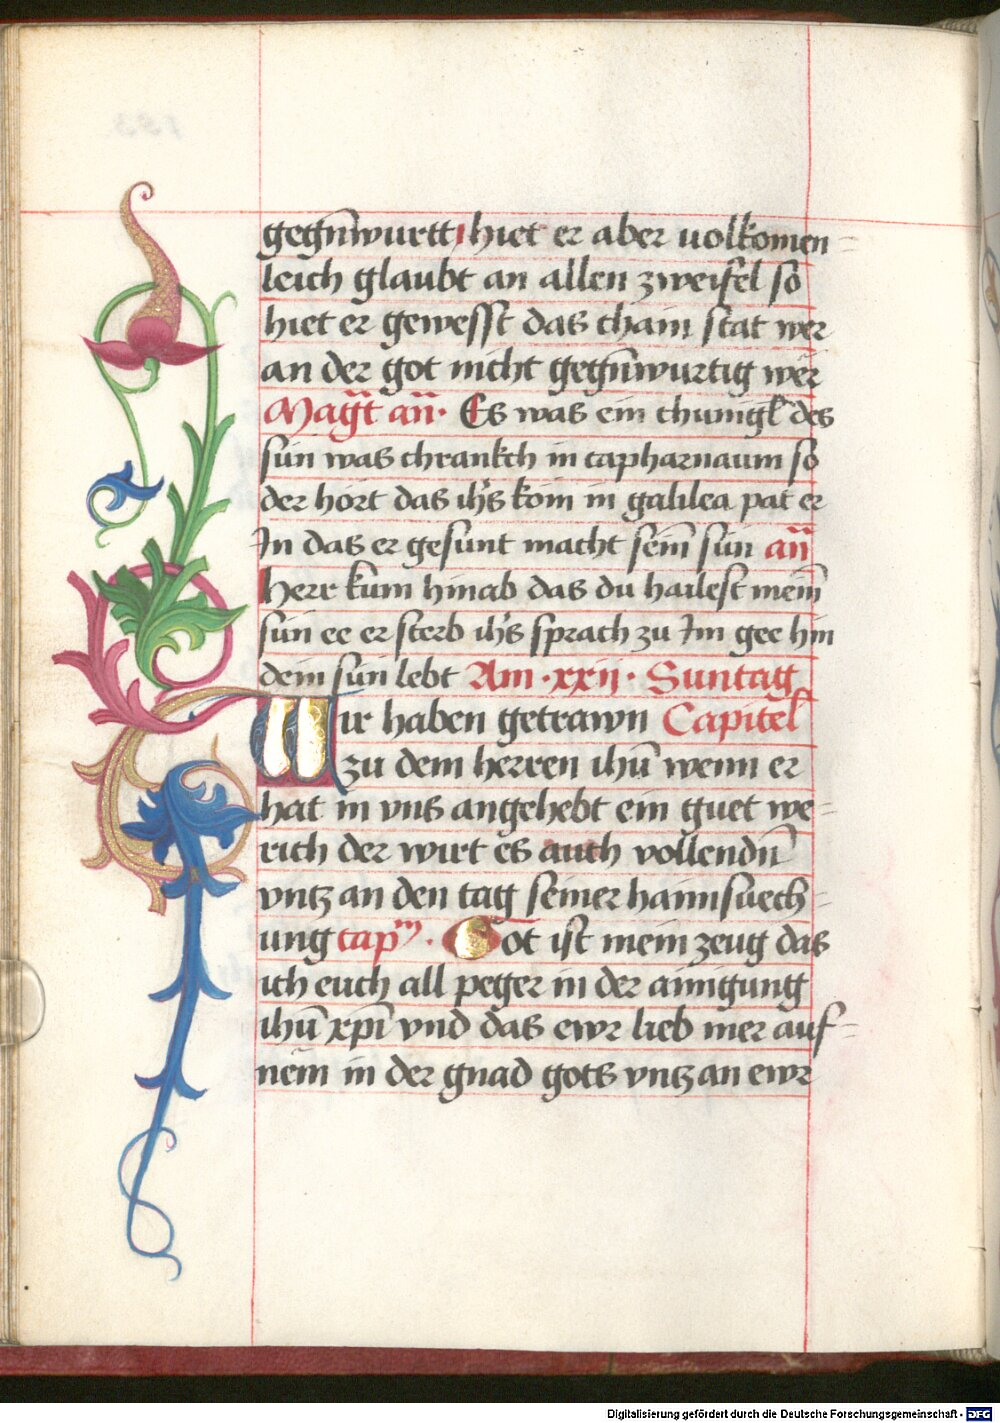 gegn̄wurtt hiet er aber uolkomen-
leich glaubt an allen zweifel so
hiet er gewesst das chain stat wer
an der got nicht gegn̄wurtig wër
Magt̄ an̄. Es was ein chunigl des
sun was chrankch in capharnaum so
der hort das ih's kom in galilea pat er
In das er gesunt macht sein̄ sun an̄
Herr kum hinab das du hailest mein̄
sun ee er sterb ih's sprach zu Im gee hin
dein sun lebt Am .xxii. Suntag
Wir haben getrawn Capitel
zu dem herren ihū wenn er
hat in vns angehebt ein guet we-
rich der wirt es auch vollendn̄
vntz an den tag seiner haimsuech-
ung cap^m. Got ist mein zeug das
ich euch all peger in der ainigung
ihū xp̄i vnd das ewr lieb mer auf-
nem in der gnad gots vntz an ewr
Digitalisierung gefördert durch die Deutsche Forschungsgemeinschaft - DFG